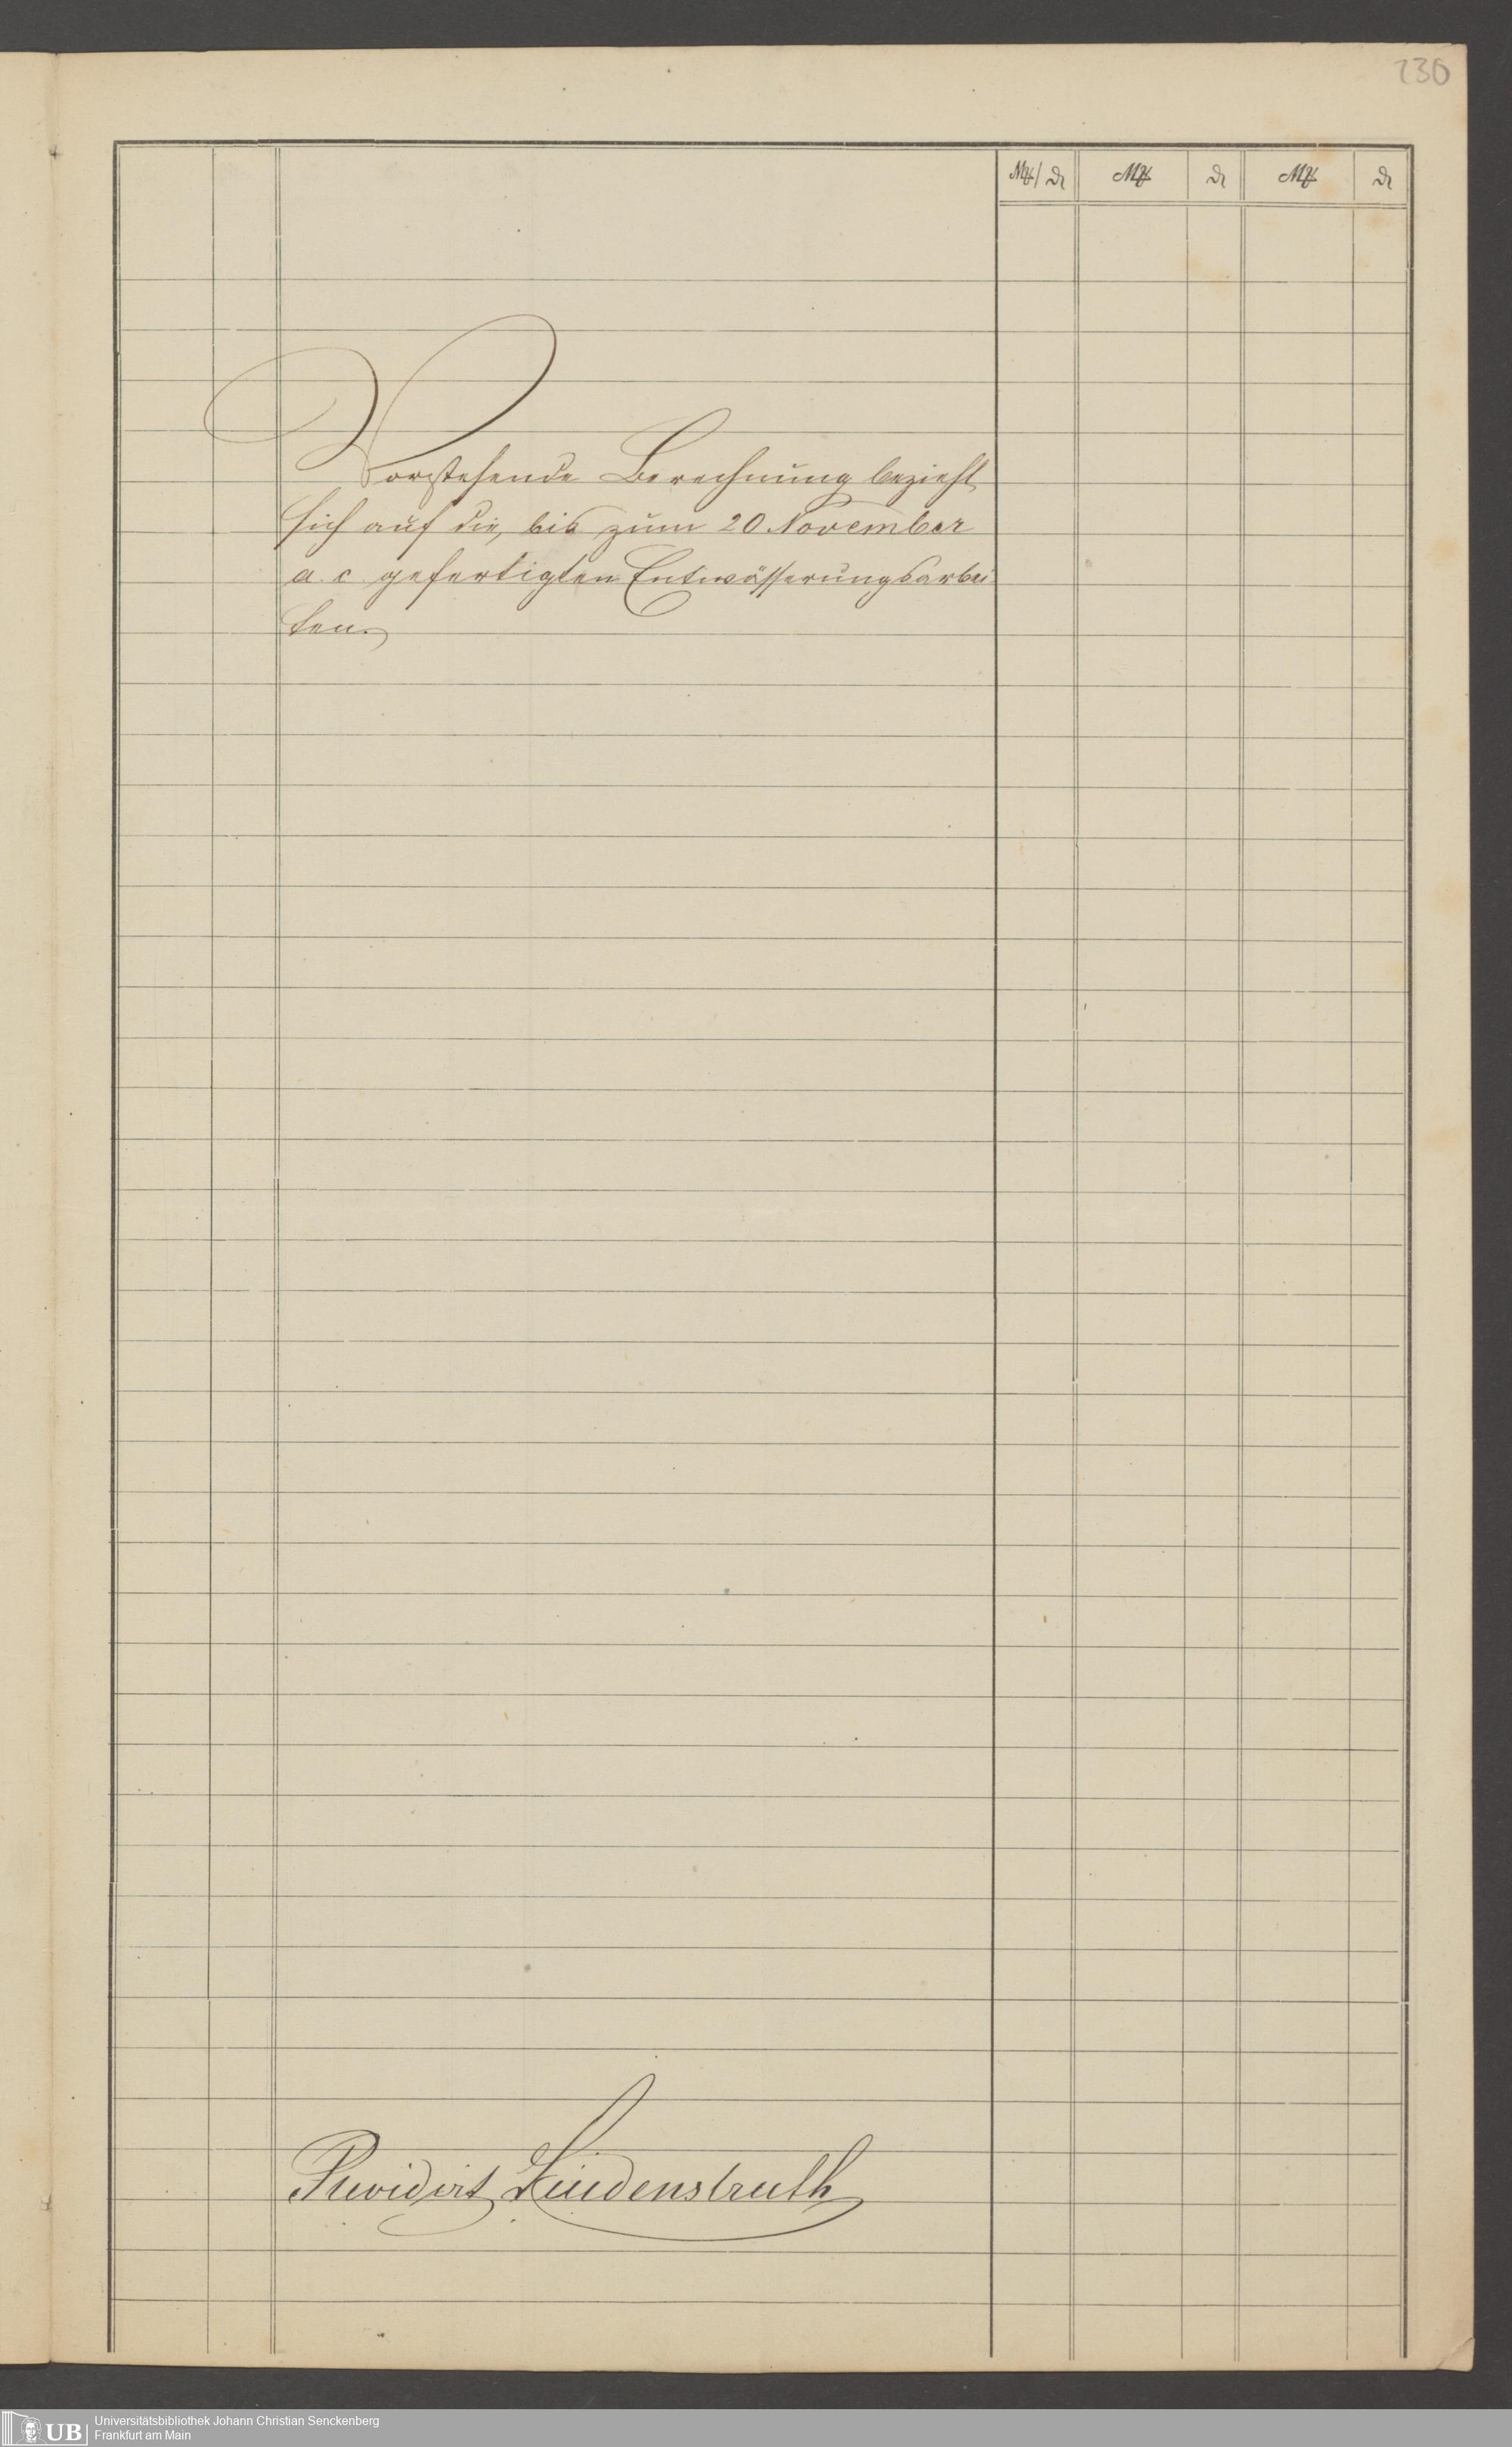 230
M / ₰ M ₰ M ₰
Vorstehende Berechnung bezieht
sich auf die, bis zum 20 November
a. c. gefertigten Entwässerungsarbei
ten.
Revidirt Lindenstruth
UB
Universitätsbibliothek Johann Christian Senckenberg
Frankfurt am Main